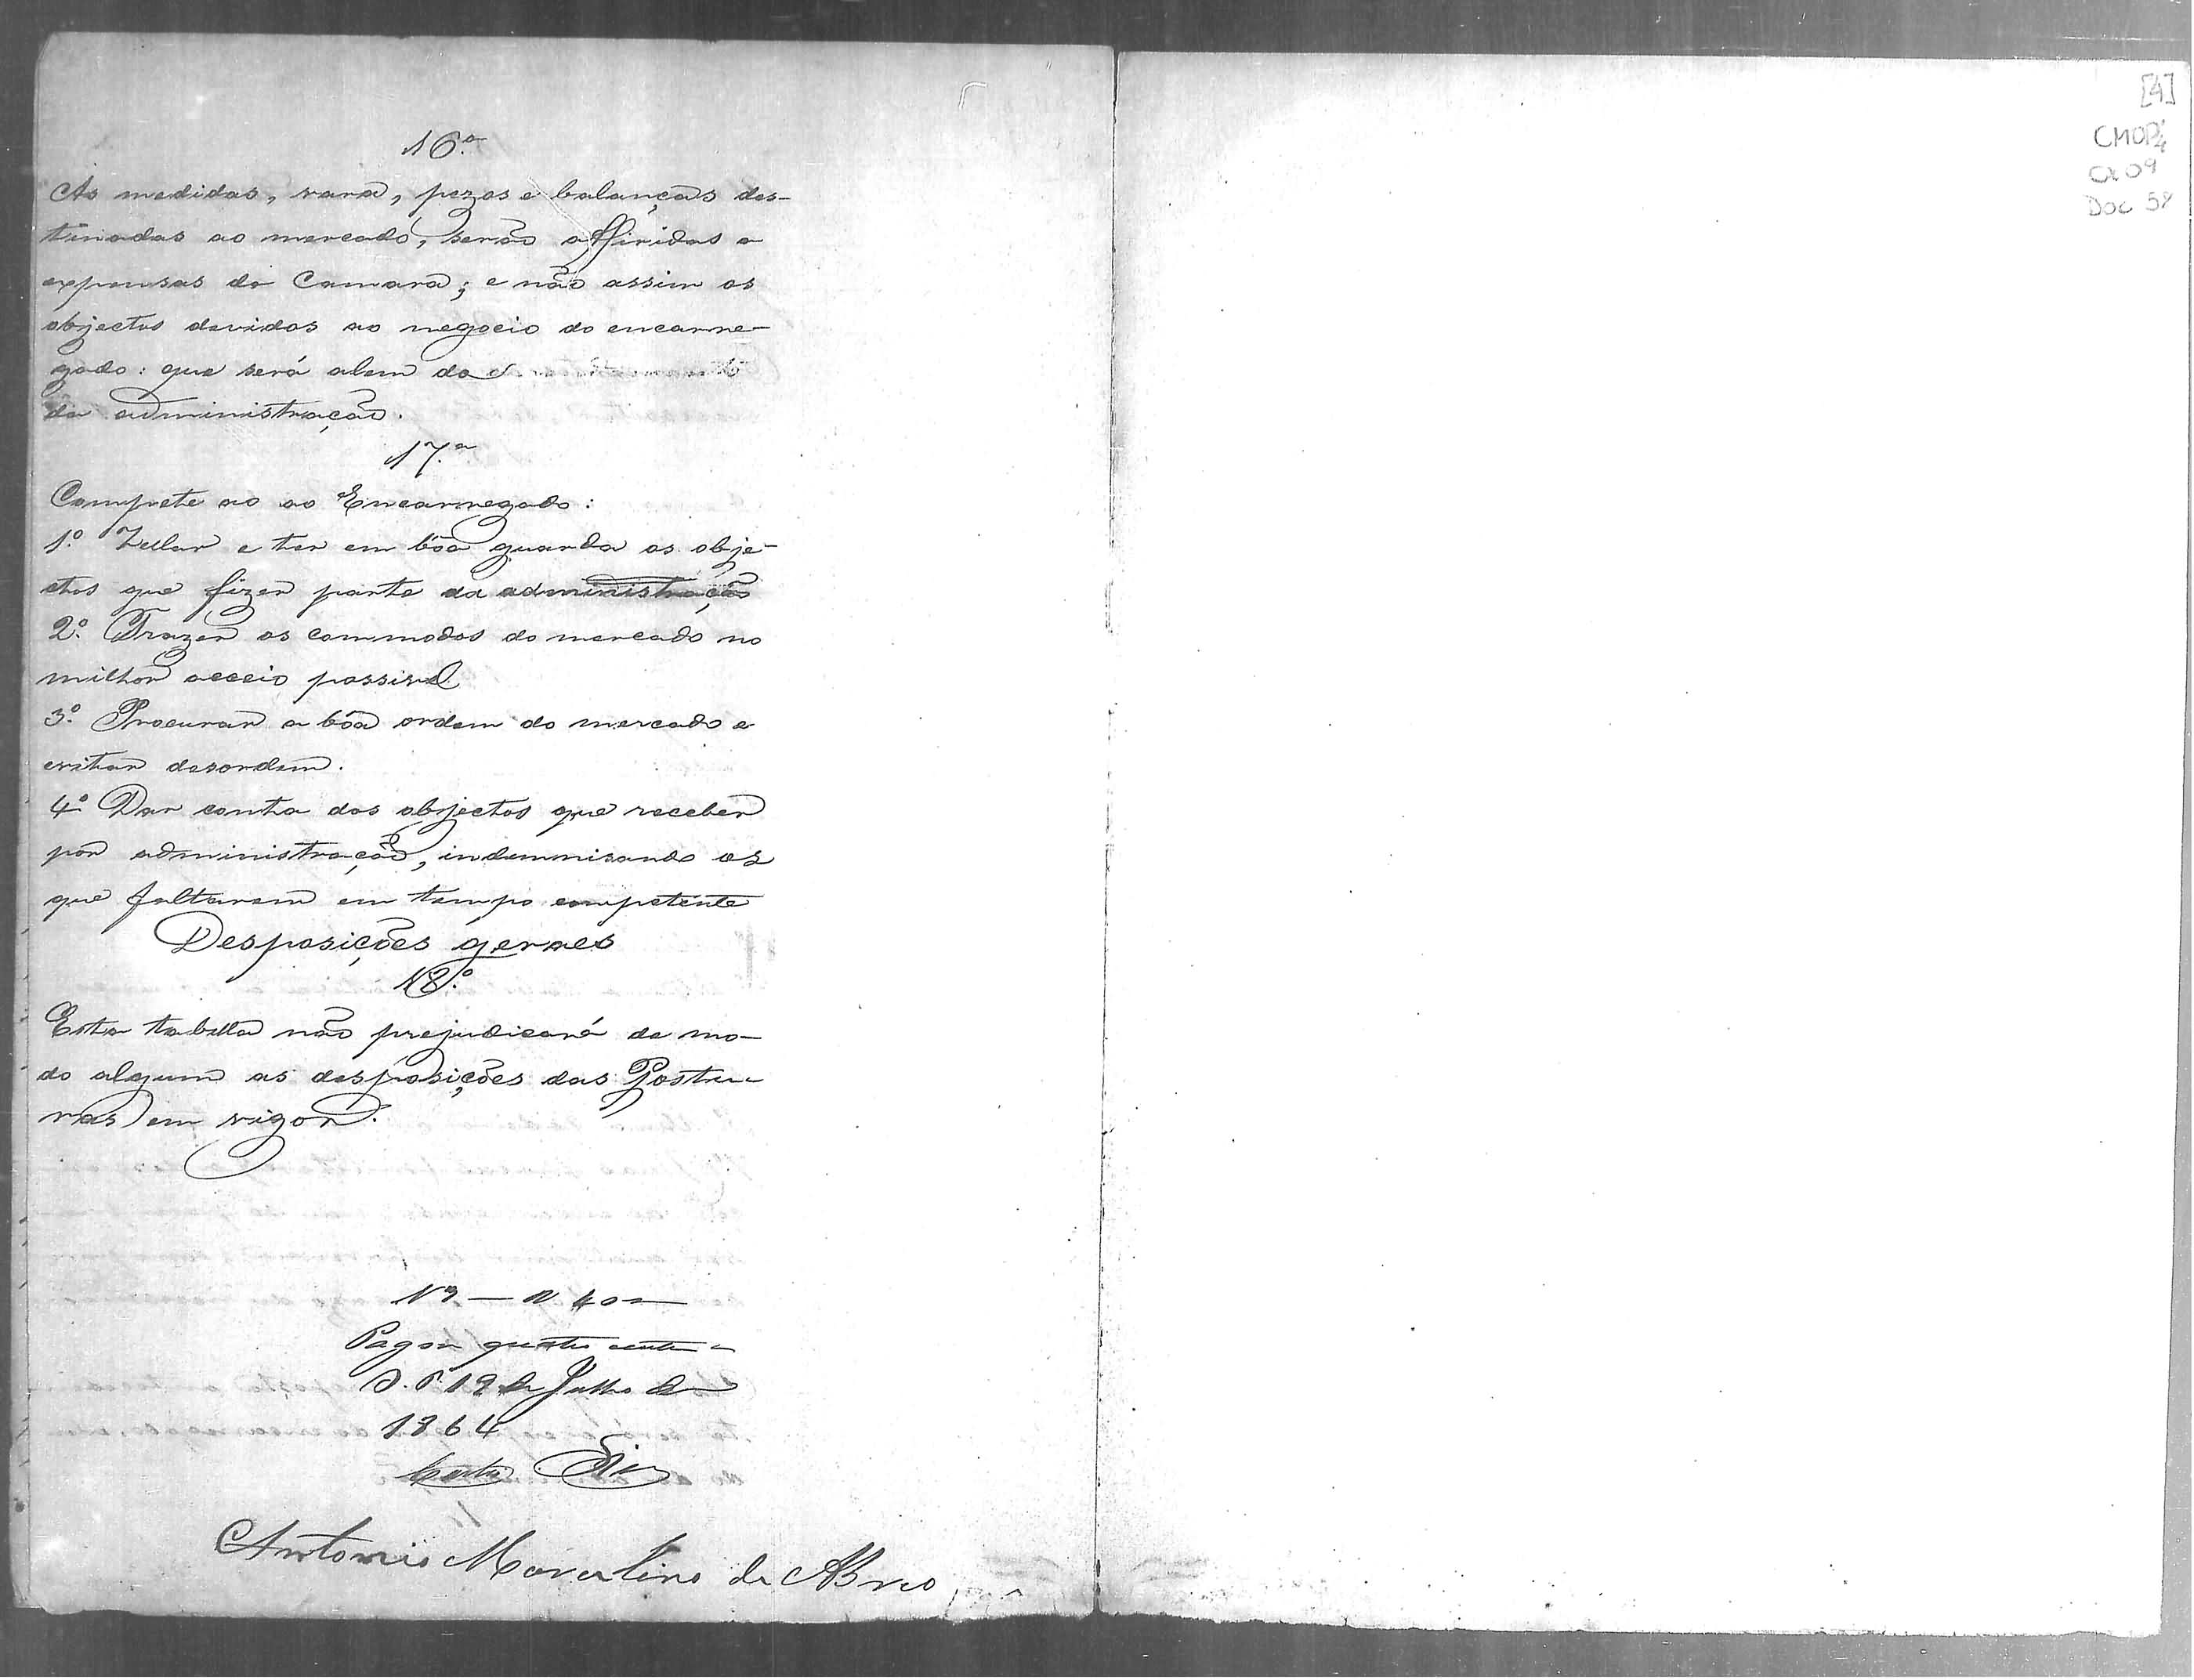 16.ª
As medidas, vara, pezos e balanças des-
tinadas ao mercado, serão affiridas a
expensas da Camara; e não assim os
objectos devidos ao negocio do encarre-
gado: que será alem da
da administração.
17.ª
Compete ao ao Encarregado:
1.º Zellar e ter em bôa guarda os obje-
ctos que fizer parte da administração
2.º Trazer os commodos do mercado no
milhor acceio possivel
3.º Procurar a bôa ordem do mercado e
evitar desordem.
4.º Dar conta dos objectos que receber
por administração, indemnisando os
que faltarem em tempo competente
Desposições geraes
18.º
Esta tabella não prejudicará de mo-
do algum as desposições das Postu-
ras em vigor.
Nº
Pagou quatro centos
19 de Julho de
1864
Antonio Marcelino de Abreo
[4]
CMOP
Cx 09
Doc 58